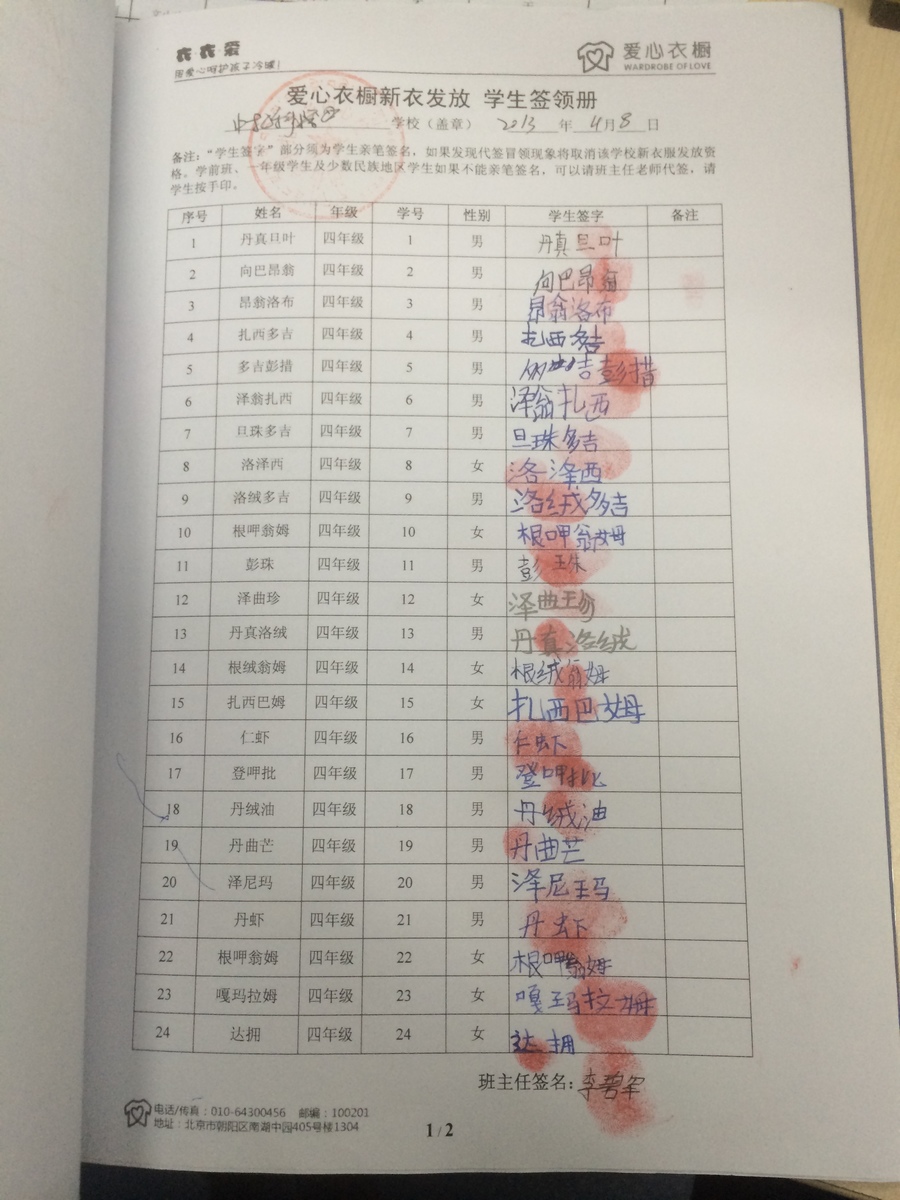 衣衣爱
用爱心呵护孩子冷暖!
爱心衣橱
WARDROBE OF LOVE
爱心衣橱新衣发放 学生签领册
学校（盖章） 2013 年 4月 8 日
备注："学生签字"部分须为学生亲笔签名，如果发现代签冒领现象将取消该学校新衣服发放资
格。学前班、一年级学生及少数民族地区学生如果不能亲笔签名，可以请班主任老师代签，请
学生按手印。
序号 姓名 年级 学号 性别 学生签字 备注
1 丹真旦叶 四年级 1 男 丹真旦叶
2 向巴昂翁 四年级 2 男 向巴昂翁
3 昂翁洛布 四年级 3 男 昂翁洛布
4 扎西多吉 四年级 4 男 扎西多吉
5 多吉彭措 四年级 5 男 吉彭措
6 泽翁扎西 四年级 6 男 泽翁扎西
7 旦珠多吉 四年级 7 男 旦珠多吉
8 洛泽西 四年级 8 女 洛泽西
9 洛绒多吉 四年级 9 男 洛绒多吉
10 根呷翁姆 四年级 10 女 根呷翁姆
11 彭珠 四年级 11 男 彭珠
12 泽曲珍 四年级 12 女 泽曲珍
13 丹真洛绒 四年级 13 男 丹真洛绒
14 根绒翁姆 四年级 14 女 根绒翁姆
15 扎西巴姆 四年级 15 女 扎西巴姆
16 仁虾 四年级 16 男 仁虾
17 登呷批 四年级 17 男 登呷批
18 丹绒油 四年级 18 男 丹绒油
19 丹曲芒 四年级 19 男 丹曲芒
20 泽尼玛 四年级 20 男 泽尼玛
21 丹虾 四年级 21 男 丹虾
22 根呷翁姆 四年级 22 女 根呷翁姆
23 嘎玛拉姆 四年级 23 女 嘎玛拉姆
24 达拥 四年级 24 女 达拥
班主任签名：李碧军
电话/传真：010-64300456 邮编：100201
地址：北京市朝阳区南湖中园405号楼1304
1 / 2